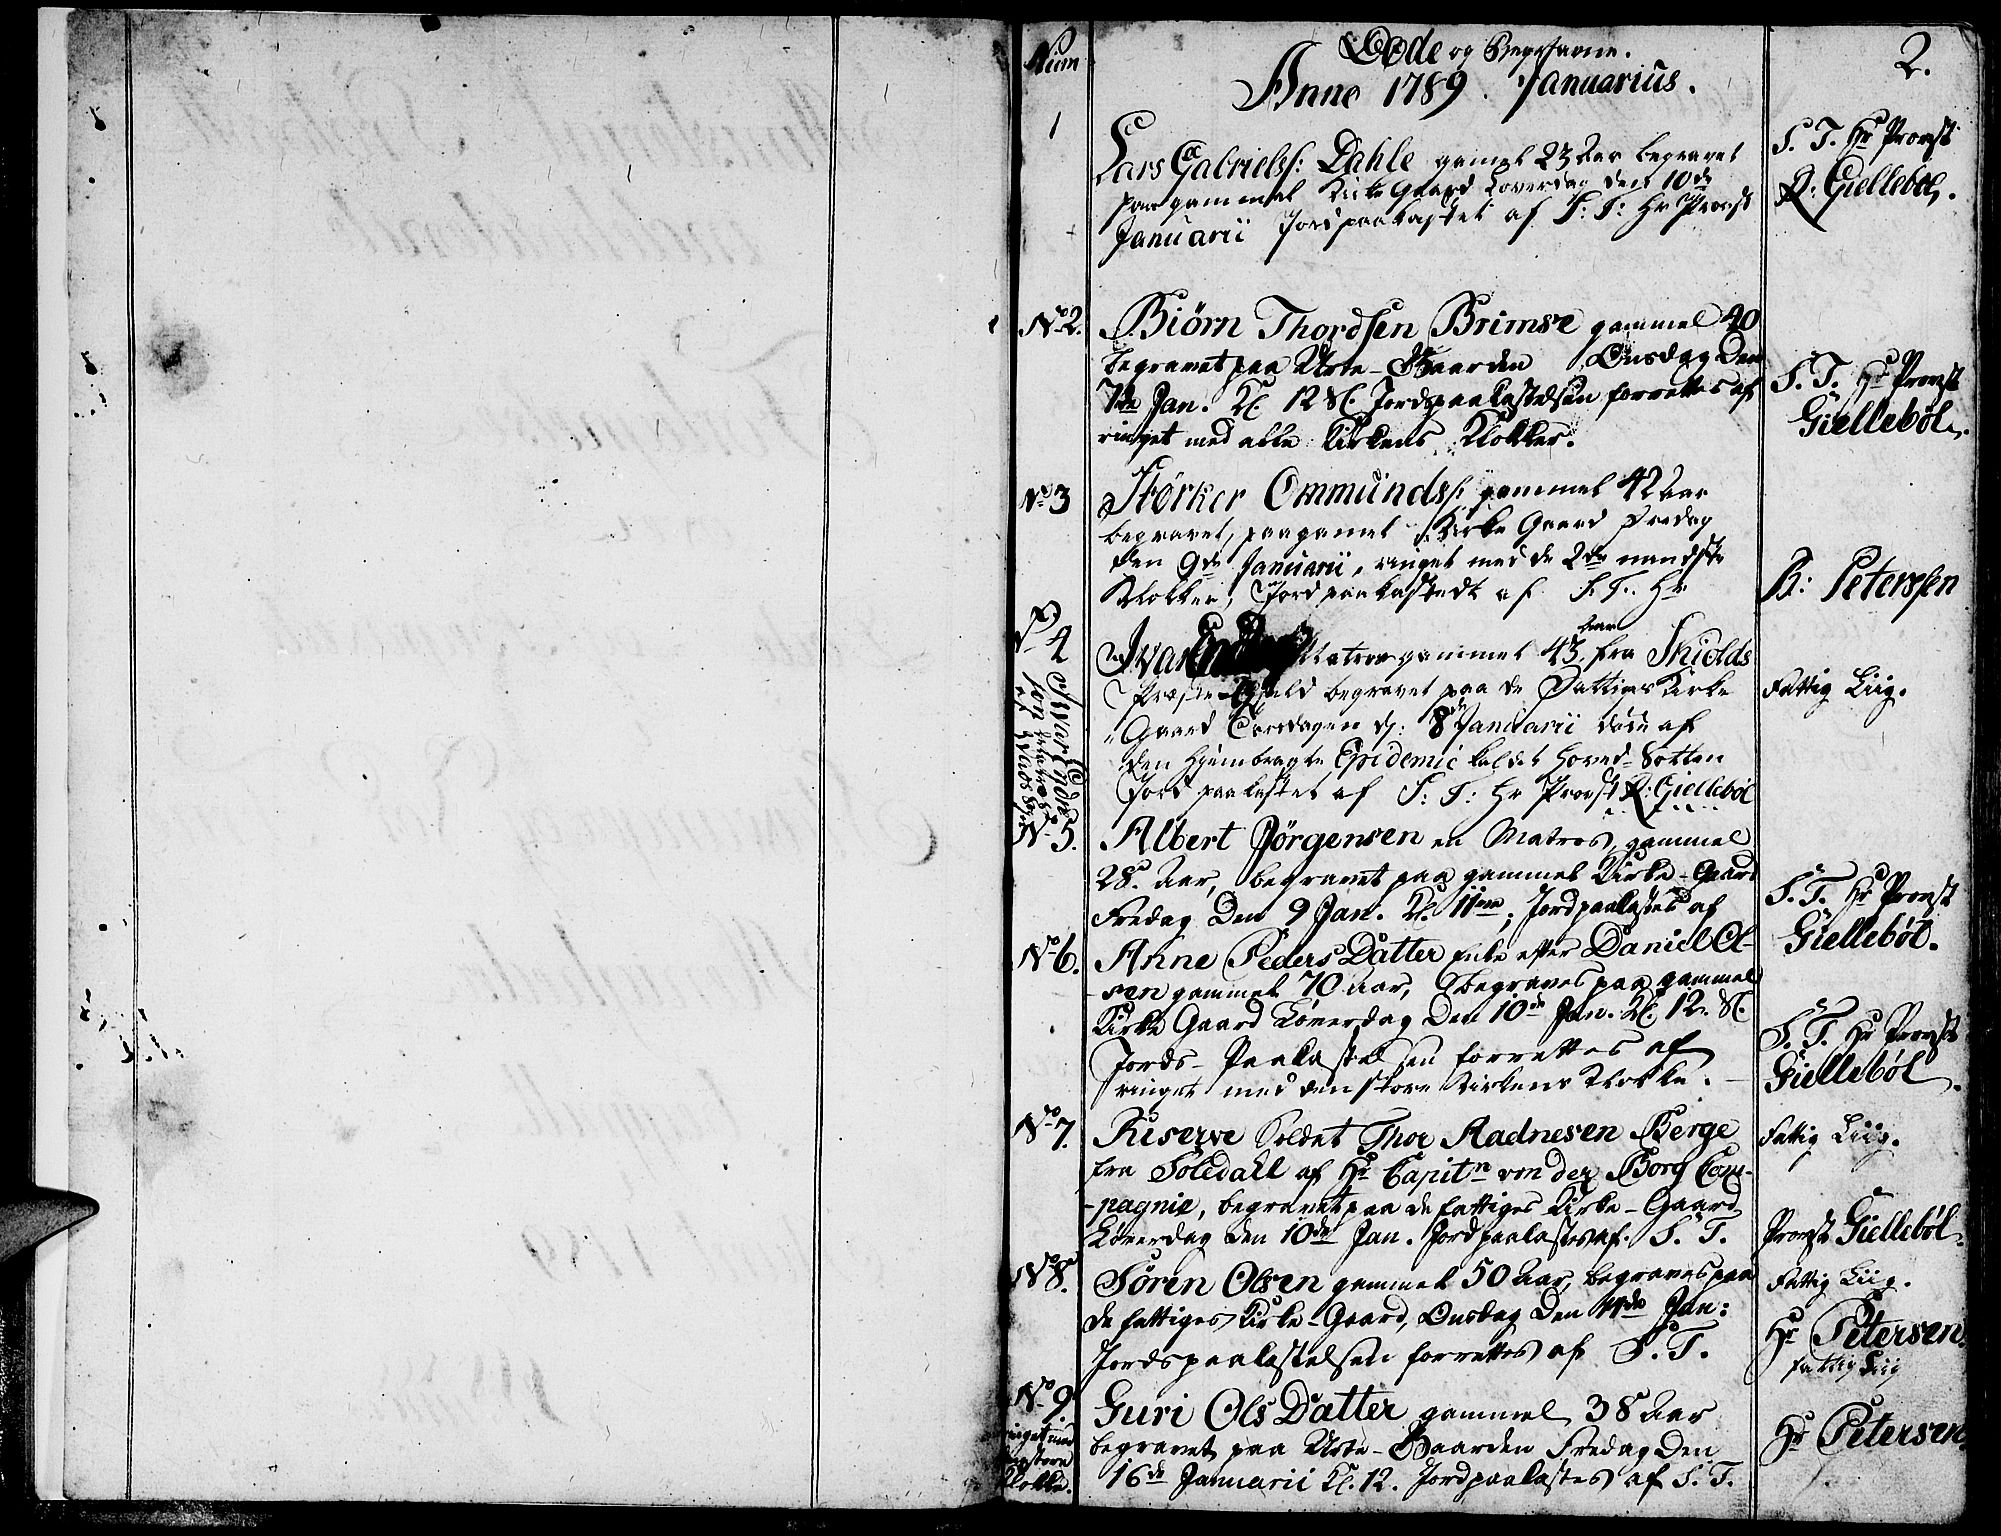 Num
Døde og Begravne.
2.
Anno 1789. Januarius.
1
Lars Gabrielss: Dahle gamel 23 Aar begravet
paa gammel Kirke Gaard Løverdag den 10de
Januarii Jordpaakastet af S: T: Hr Provst
S. T. Hr Provst
R: Giellebøl.
No 2.
Biörn Thordsen Brimse gammel 40
begravet paa Urte-Gaarden Onsdag Den
7de Jan. Kl. 12 Sl. Jordspaakastelsen forrettes af
ringet med alle Kirkens Klokker.
S. T. Hr Provst
Giellebøl.
No 3
Størker Ommundss: gammel 42 Aar
begravet, paa gamel Kirke Gaard Fredag
den 9de Januarii, ringet med de 2de mindste
Klokker, Jord paakastedt af S. T. Hr
B: Peterssen
No 4
Ivar Matros gammel 43 Aar fra Skiolds
Præste-Gield begravet paa de Fattiges Kirke
Gaard Torsdagen d: 8de Januarii døde af
den hjembragte Epidemie kaldet Hoved-Sotten
Jord paakastet af S: T: Hr Provst R: Giellebøl
Fattig Liig.
Ivar
søn Matros
af
No 5.
Albert Jörgensen en Matros, gammel
28. Aar, begravet paa gammel Kirke-Gaard
Fredag Den 9 Jan. Kl. 11; Jordpaakastes af
S. T. Hr Provst
Giellebøl.
No 6.
Anne Peders Datter Enke efter Daniel Ol-
-sen gammel 70 Aar, begraves paa gammel
Kirke Gaard Løverdag Den 10de Jan. Kl. 12. Sl.
Jords-Paakastelsen forrettes af
ringet med den store Kirkens Klokke.
S. T. Hr Provst
Giellebøl.
No 7.
Reserve Soldat Thor Aadnesen Berge
fra Soledahl af Hr Capitn von der Borg Com-
-pagnie, begravet paa de fattiges Kirke-Gaard
Løverdag den 10de Jan. Jordpaakastes af S. T.
Fattig Liig.
Provst Giellebøl.
No 8.
Sören Olsen gammel 50 Aar, begraves paa
de fattiges Kirke-Gaard, Onsdag Den 14de Jan:
Jordspaakastelsen forrettes af S. T.
Fattig Liig.
Hr Petersen.
fattig Liig
No 9.
ringet med
den store
Klokke.
Guri Ols Datter gammel 38 Aar
begravet paa Urte-Gaarden Fredag Den
16de Januarii Kl. 12. Jordpaakastes af S. T.
Hr Petersen.